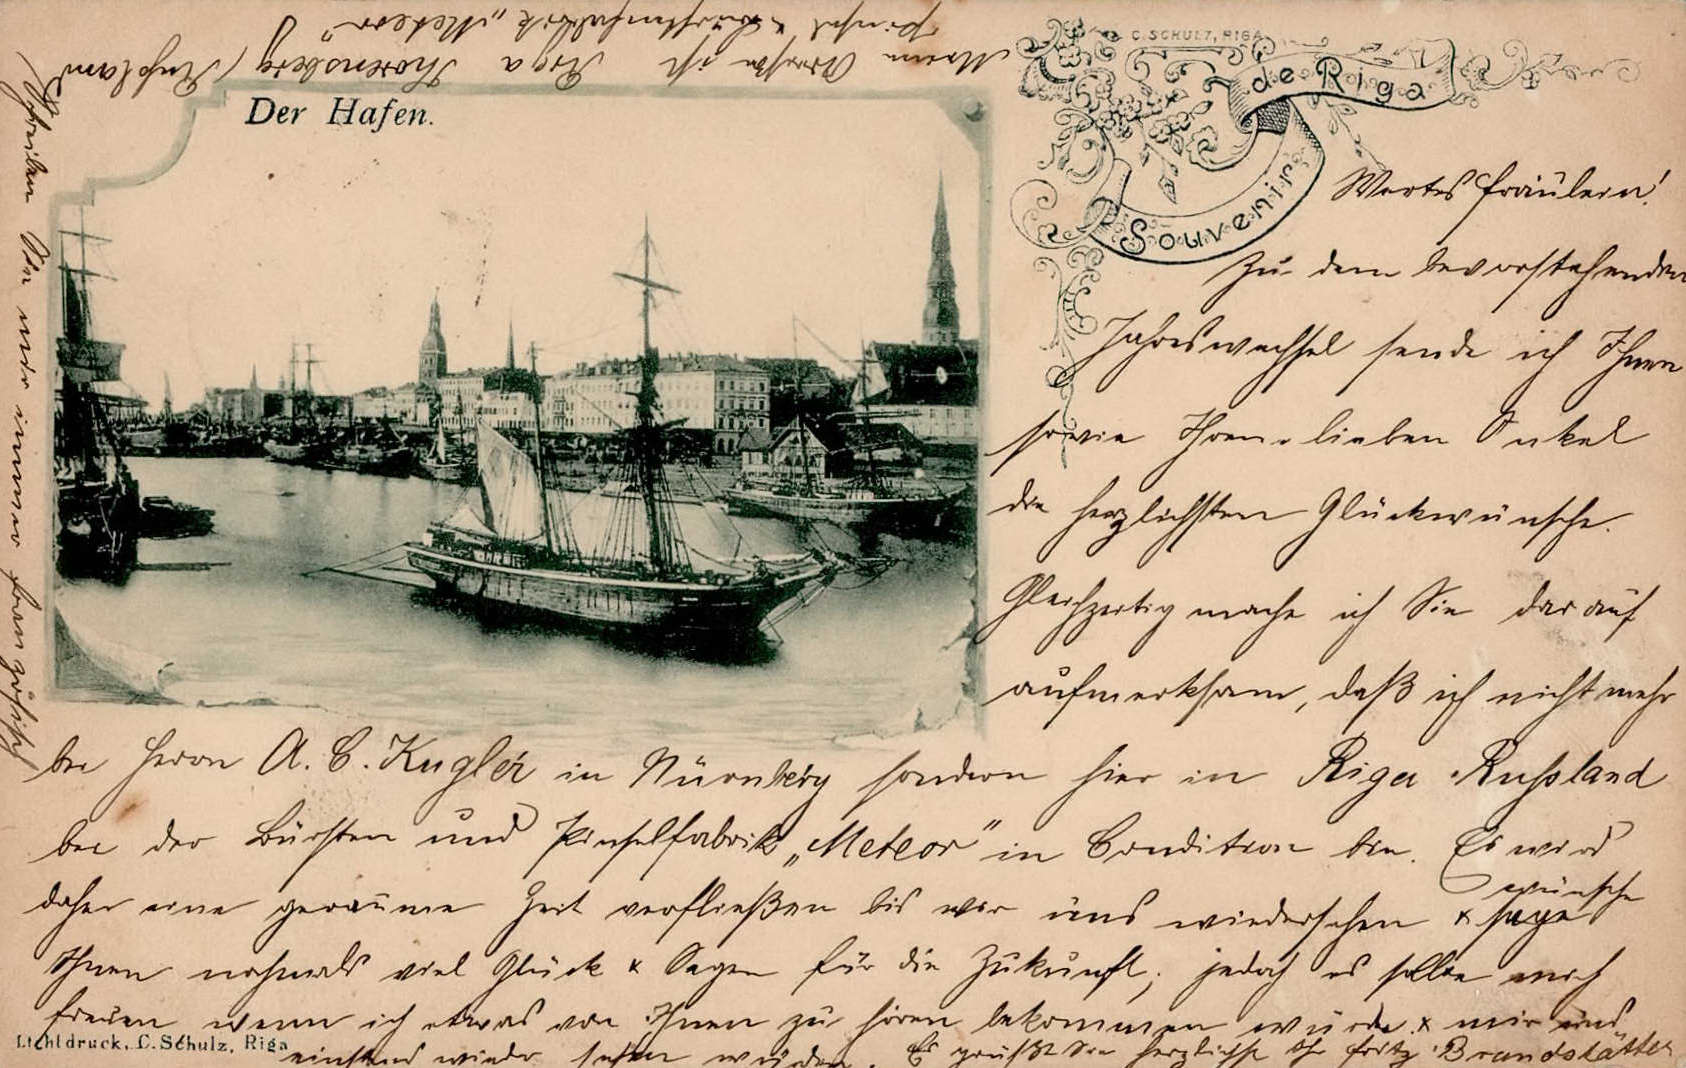 C. SCHULZ, RIGA
Souvenir de Riga
Der Hafen.
Wertes Fräulein!
Zu dem bevorstehenden
Jahreswechsel sende ich Ihnen
sowie Ihrem lieben Onkel
die herzlichsten Glückwünsche.
Gleichzeitig mache ich Sie darauf
aufmerksam, daß ich nicht mehr
bei Herrn A. C. Kugler in Nürnberg sondern hier in Riga Russland
bei der Bürsten und Pinselfabrik „Meteor“ in Condition bin. Es wird
daher eine geraume Zeit verfließen bis wir uns wiedersehen & wünsche
Ihnen nochmals viel Glück & Segen für die Zukunft, jedoch es sollte mich
freuen wenn ich etwas von Ihnen zu hören bekommen würde & wir uns
einstens wieder sehen würden. Es grüßt Sie herzlichst Ihr Fritz Brandstätter
Lichtdruck, C. Schulz, Riga
Meine Adresse ist Riga Thorensberg (Russland)
Pinsel & Bürstenfabrik „Meteor“
Schreiben Sie mir immer französisch